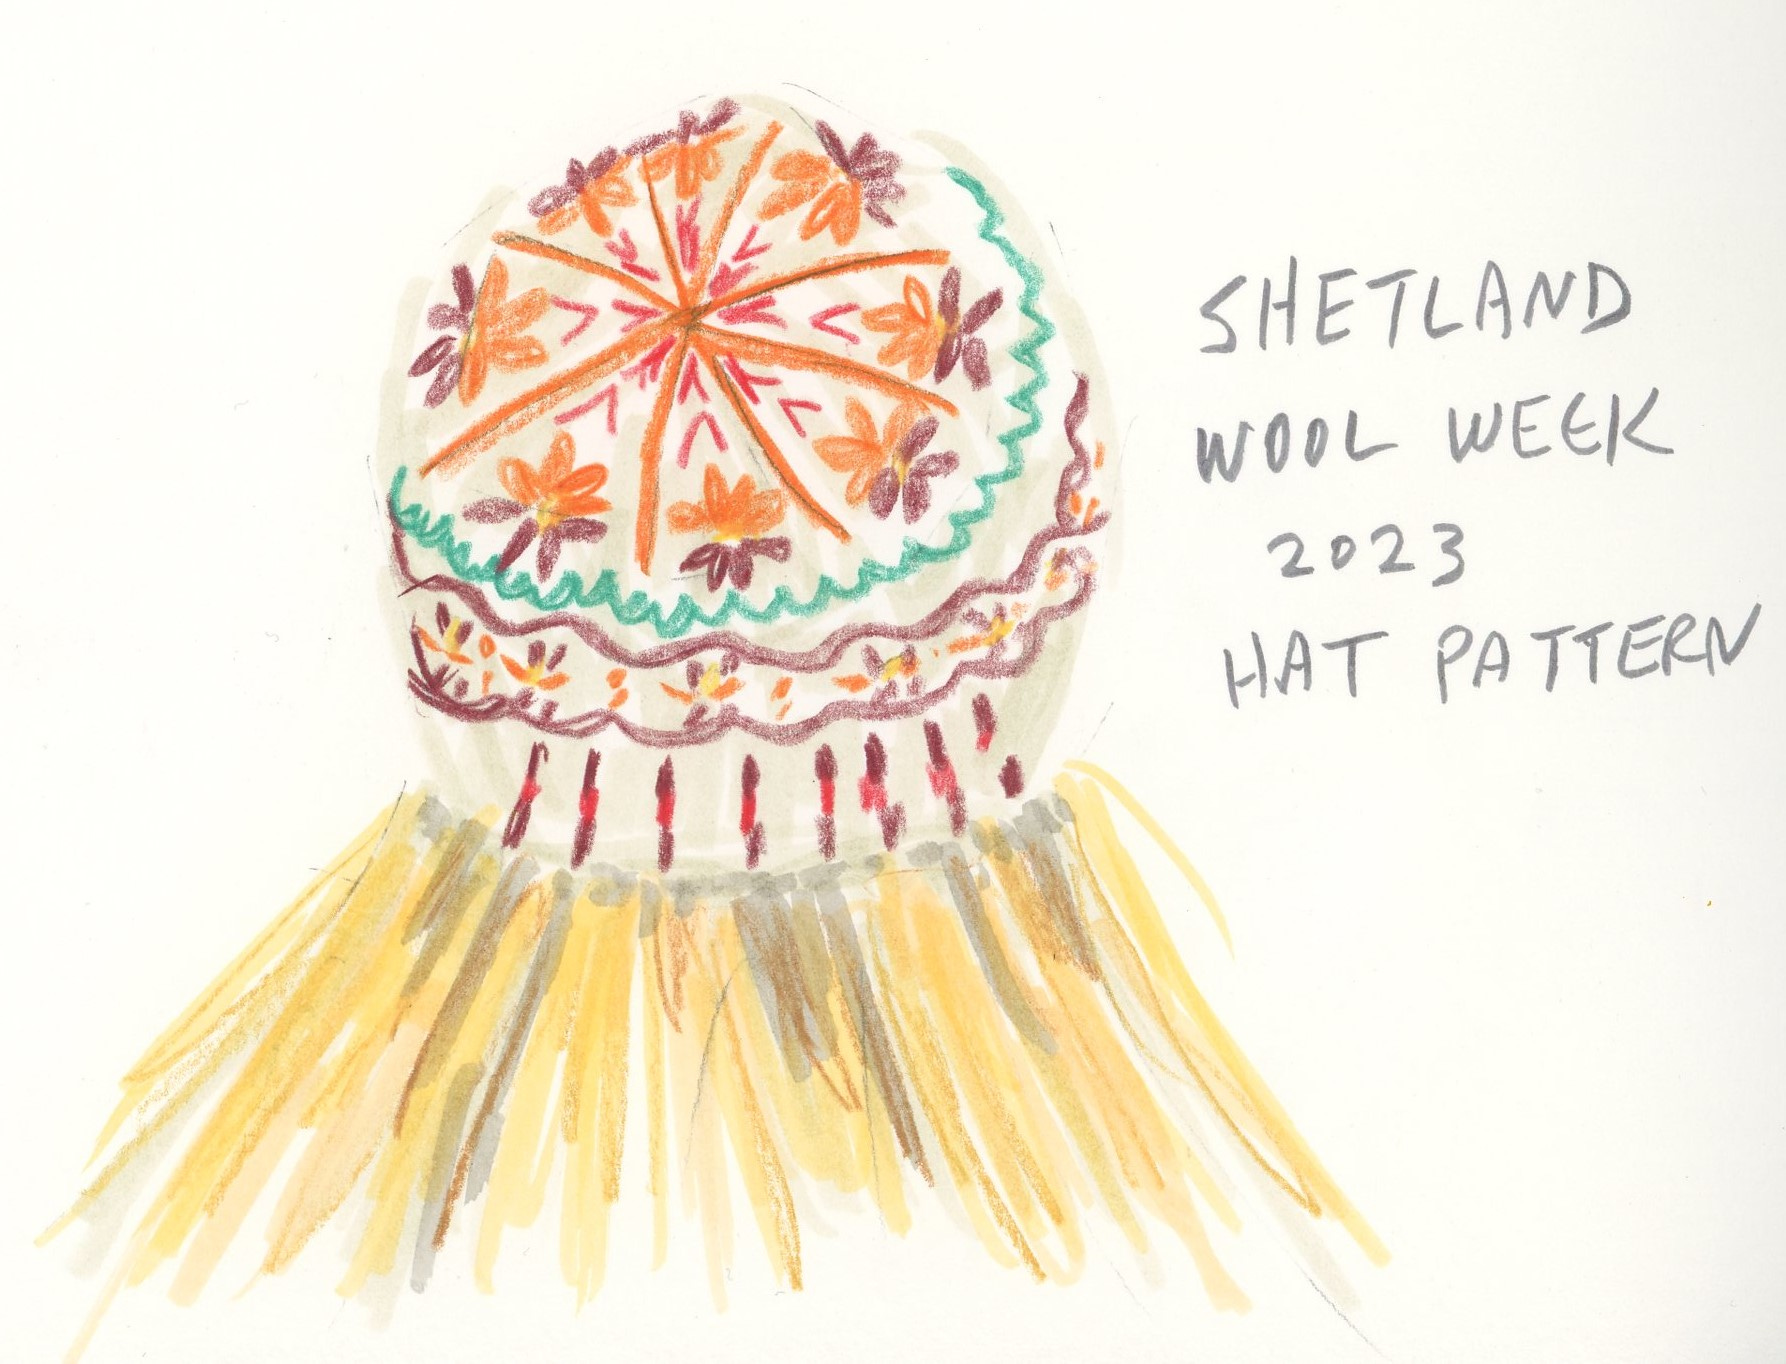 SHETLAND
WOOL WEEK
2023
HAT PATTERN